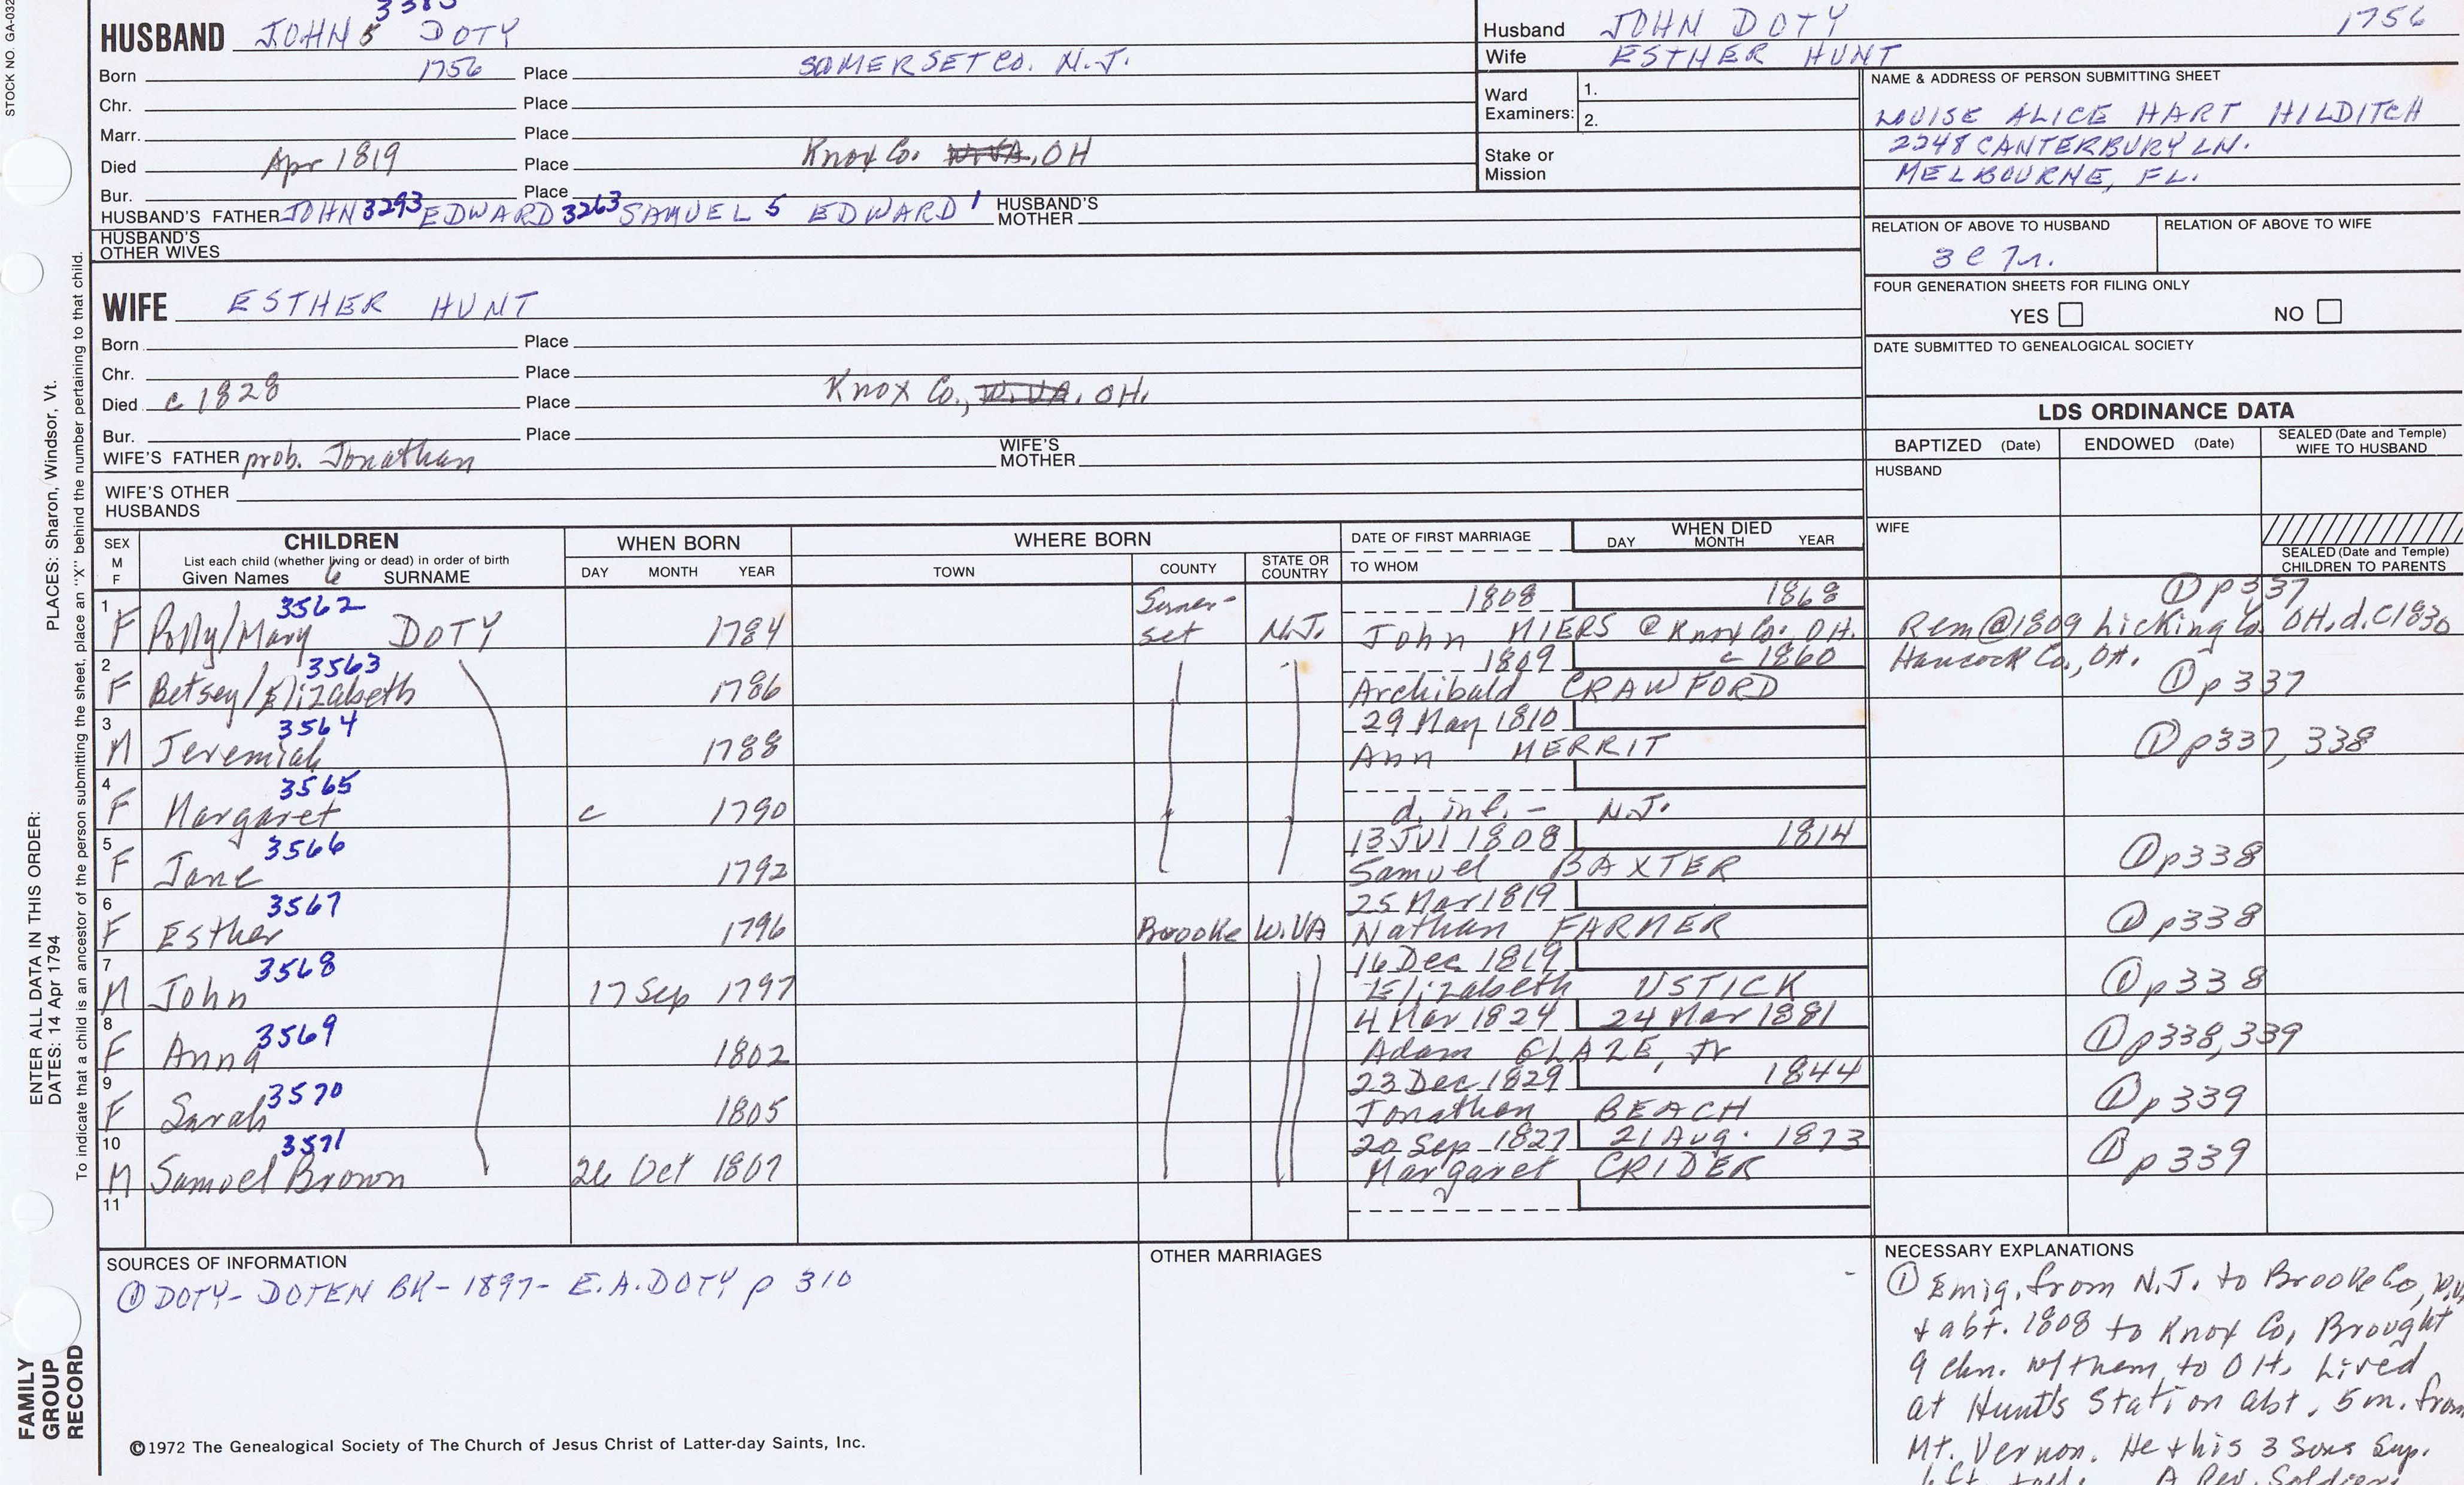 STOCK NO. GA-032
HUSBAND JOHN 5 DOTY
Born 1756 Place SOMERSET CO. N.J.
Chr. Place
Marr. Place
Died Apr 1819 Place Knox Co. W.VA, OH
Bur. Place
HUSBAND'S FATHER JOHN 3293 EDWARD 3263 SAMUEL 5 EDWARD 1 HUSBAND'S MOTHER
HUSBAND'S OTHER WIVES
Husband JOHN DOTY 1756
Wife ESTHER HUNT
Ward Examiners: 1.
2.
Stake or Mission
NAME & ADDRESS OF PERSON SUBMITTING SHEET
LOUISE ALICE HART HILDITCH
2248 CANTERBURY LN.
MELBOURNE, FL.
RELATION OF ABOVE TO HUSBAND RELATION OF ABOVE TO WIFE
3 C 7 r.
FOUR GENERATION SHEETS FOR FILING ONLY
YES NO
DATE SUBMITTED TO GENEALOGICAL SOCIETY
WIFE ESTHER HUNT
Born Place
Chr. Place
Died c 1828 Place Knox Co., W.VA. OH.
Bur. Place
WIFE'S FATHER prob. Jonathan WIFE'S MOTHER
WIFE'S OTHER HUSBANDS
LDS ORDINANCE DATA
BAPTIZED (Date) ENDOWED (Date) SEALED (Date and Temple) WIFE TO HUSBAND
HUSBAND
WIFE
SEALED (Date and Temple) CHILDREN TO PARENTS
SEX M F CHILDREN WHEN BORN WHERE BORN DATE OF FIRST MARRIAGE WHEN DIED
List each child (whether living or dead) in order of birth
Given Names 6 SURNAME DAY MONTH YEAR TOWN COUNTY STATE OR COUNTRY TO WHOM DAY MONTH YEAR
1 3562 Somer- 1808 1868 ① p337
F Polly/Mary DOTY 1784 set N.J. John MIERS @ Knox Co. OH. Rem @ 1809 Licking Co. OH, d. c1830
2 3563 1809 c 1860 Hancock Co., OH.
F Betsey/Elizabeth 1786 Archibald CRAWFORD ① p 337
3 3564 29 May 1810
M Jeremiah 1788 Ann MERRIT ① p337, 338
4 3565
F Margaret c 1790 d. inf. - N.J.
5 3566 13 Jul 1808 1814
F Jane 1792 Samuel BAXTER ① p338
6 3567 25 Mar 1819
F Esther 1796 Brooke W.VA Nathan FARMER ① p338
7 3568 16 Dec 1819
M John 17 Sep 1797 Elizabeth USTICK ① p338
8 3569 4 Mar 1824 24 Mar 1881
F Anna 1802 Adam GLAZE, Jr ① p338,339
9 3570 23 Dec 1829 1844
F Sarah 1805 Jonathan BEACH ① p339
10 3571 20 Sep 1827 21 Aug. 1873
M Samuel Brown 26 Oct 1807 Margaret CRIDER ① p339
11
SOURCES OF INFORMATION
① DOTY- DOTEN BK- 1897- E.A.DOTY p 310
OTHER MARRIAGES
NECESSARY EXPLANATIONS
① Emig. from N.J. to Brooke Co,
+ abt. 1808 to Knox Co, Brought
9 chn. w/them to OH. Lived
at Hunt's Station abt. 5 m. from
Mt. Vernon. He + his 3 sons
A Rev. Soldier
©1972 The Genealogical Society of The Church of Jesus Christ of Latter-day Saints, Inc.
FAMILY GROUP RECORD
ENTER ALL DATA IN THIS ORDER:
DATES: 14 Apr 1794 PLACES: Sharon, Windsor, Vt.
To indicate that a child is an ancestor of the person submitting the sheet, place an "X" behind the number pertaining to that child.